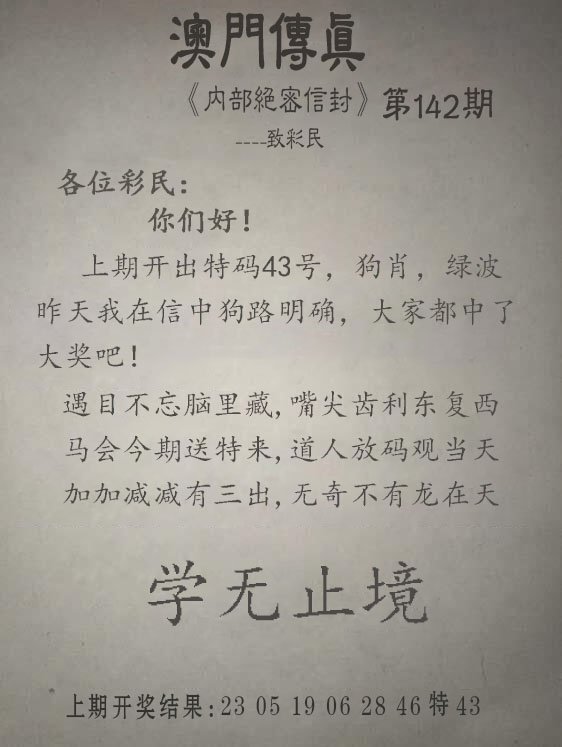 澳門傳真
《内部絕密信封》第142期
----致彩民
各位彩民：
你们好！
上期开出特码43号，狗肖，绿波
昨天我在信中狗路明确，大家都中了
大奖吧！
遇目不忘脑里藏,嘴尖齿利东复西
马会今期送特来,道人放码观当天
加加减减有三出,无奇不有龙在天
学无止境
上期开奖结果:23 05 19 06 28 46特43